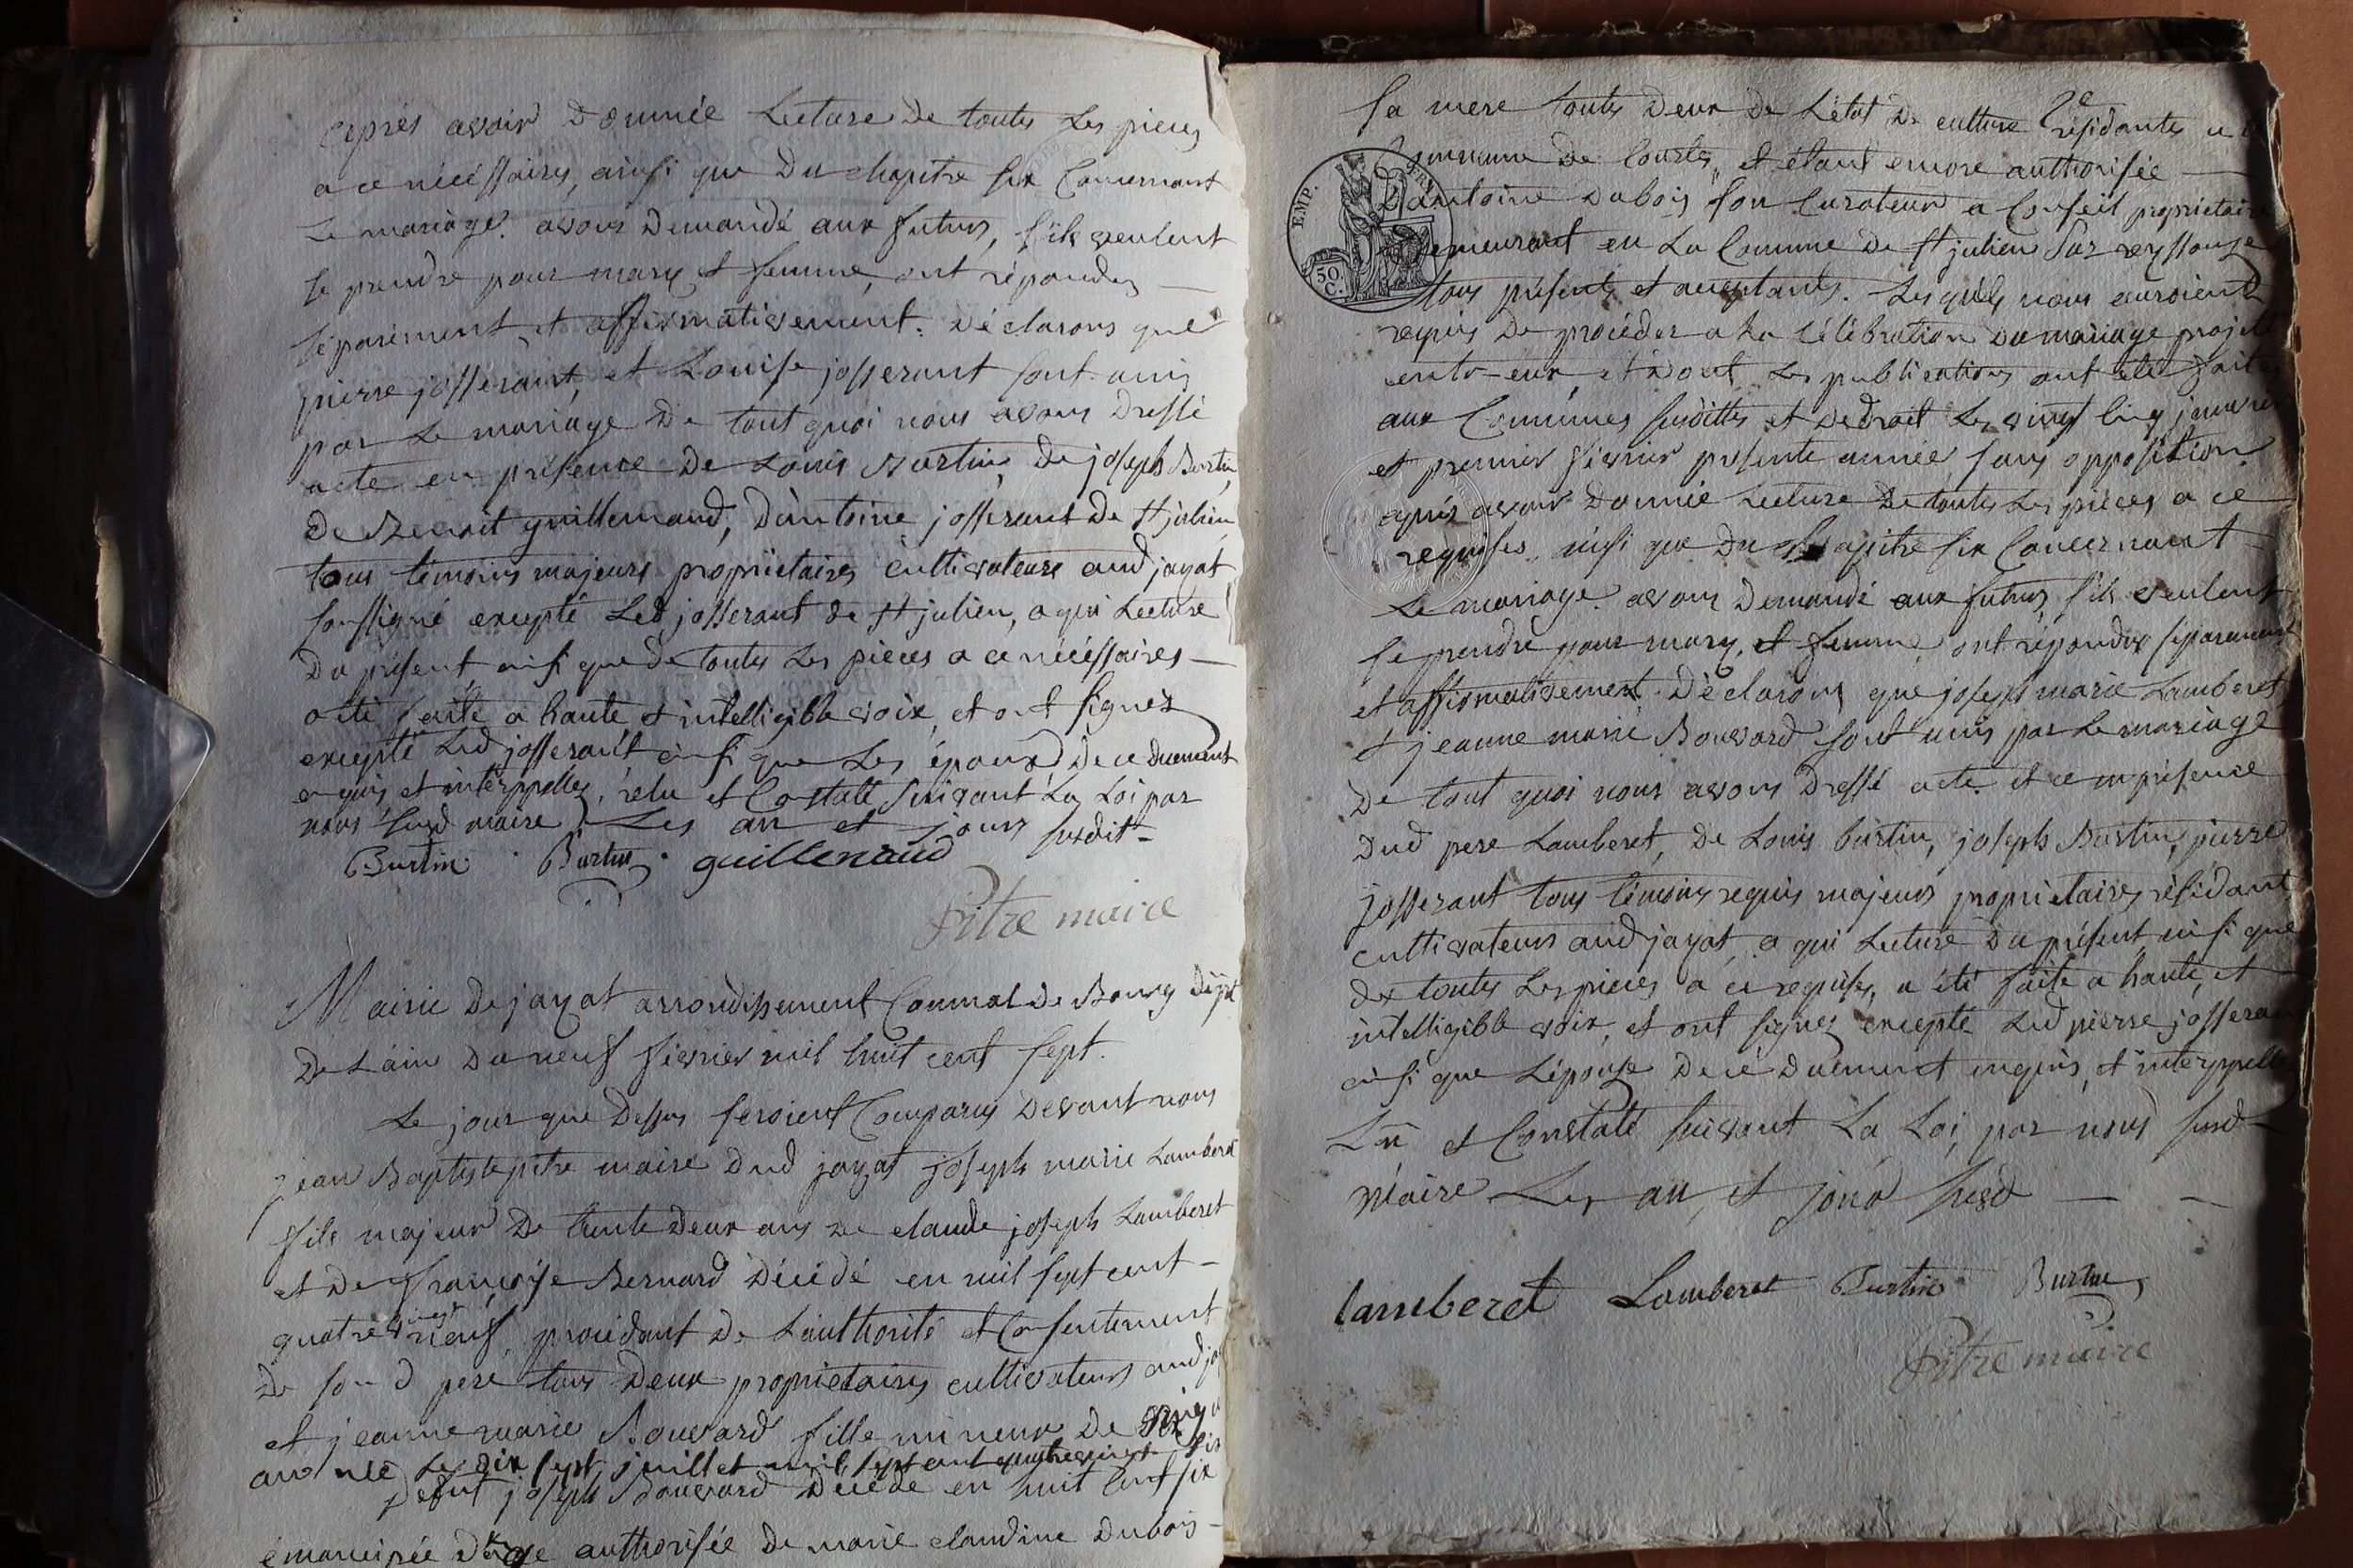 après avoir donnée Lecture de toutes Les pieces
a ce nécéssaires, ainsi que du chapitre six Concernant
Le mariage. avons demandé aux futurs, s'ils veulent
se prendre pour mary et femme, ont répondus —
séparément et affirmativement. Déclarons que
pierre josserant, et Louise josserant sont unis
par Le mariage De tout quoi nous avons dressé
acte en présence De Louis Burtin, de joseph Burtin,
de Benoit guillemaud, d'antoine josserant de st julien
tous témoins majeurs propriétaires cultivateurs aud jayat
soussigné excepté Led josserant de st julien, a qui Lecture
du présent ainsi que de toutes Les pieces a ce nécéssaires —
a été faite a haute et intelligible voix, et ont signez
excepté Led josserant ainsi que Les époux de ce duement
enquis et interppellés, relu et Constatté suivant La Loi par
nous susd maire Les an et jours susdit -
Burtin Burtin guillemaud
Pitre maire
Mairie de jayat arrondissement Communal de Bourg dépt
de L'ain du neuf fievrier mil huit cent sept.
Le jour que dessus seroient Comparus devant nous
jean Baptiste pitre maire dud jayat joseph marie Lamberet
fils majeur de trente deux ans de claude joseph Lamberet
et de françoise Bernard décédé en mil sept cent —
quatre vingt neuf, procédant de L'authorité et Consentement
de son d pere tous deux propriétaires cultivateurs aud
et jeanne marie Bouvard fille mineur de
ans née Le dix sept juillet mil sept cent quatrevingt six
defut joseph Bouvard décédé en huit Cent six
émancipée d'age authorisée de marie claudine dubois —
sa mere toutes deux de L'état de culture résidantes a
Commune de Courtes, et étant encore authorisée —
D'antoine dubois son Curateur a Conseil propriétaire
demeurant en La Commune de st julien Sur reyssouze
tous présents et acceptants. Lesquels nous auroient
requis de procéder a La Célébration du mariage projeté
entr-eux, et dont Les publications ont été faites
aux Communes susdittes et de droit Les vingt Cinq janvier
et premier fievrier présente année sans opposition.
après avoir donnée Lecture de toutes Les pieces a ce
requises, ainsi que du chapitre six Concernant —
Le mariage. avons demandé aux futurs s'ils veulent
se prendre pour mary, et femme, ont répondus séparement
et affirmativement. Déclarons que joseph marie Lamberet
et jeanne marie Bouvard sont unis par Le mariage
De tout quoi nous avons dressé acte. et ce en présence
dud pere Lamberet, de Louis burtin, joseph Burtin, pierre
josserant tous témoins requis majeurs propriétaires résidant
cultivateurs aud jayat, a qui Lecture du présent ainsi que
de toutes Les pieces a ce requises, a été faite a haute, et
intelligible voix, et ont signez excepté Led pierre josserant
ainsi que L'épouse de cé duement enquis, et interppellés
Lu et Constaté suivant La Loi, par nous susd —
Maire Les an, et jour susd — —
lamberet Lamberet Burtin Burtin
Pitre maire
EMP.
50
C.